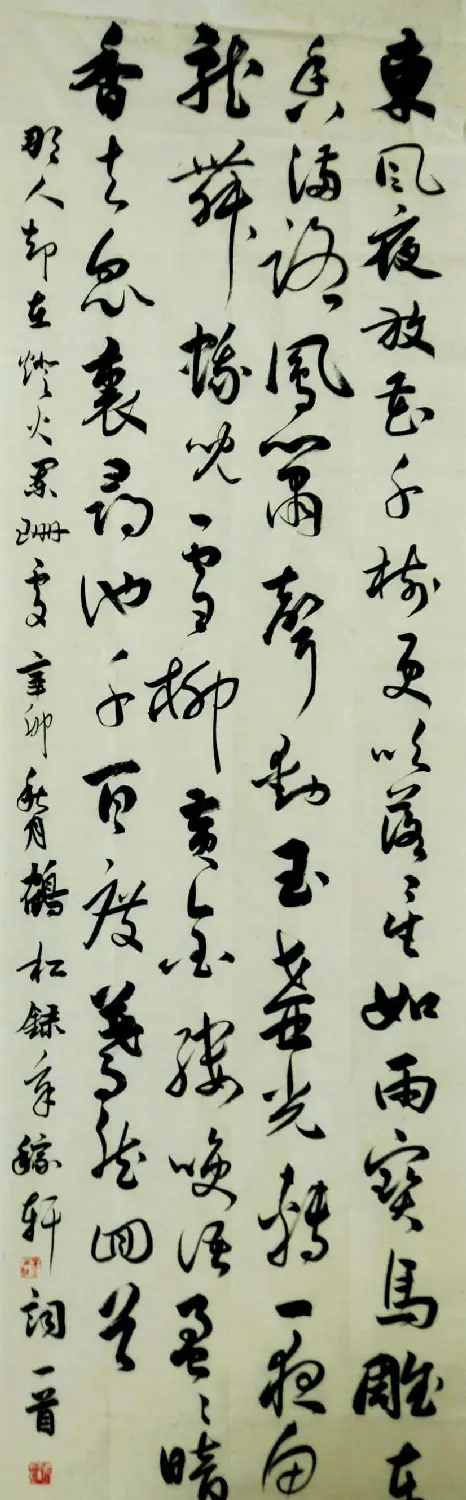 東風夜放花千樹更吹落星如雨寶馬雕车
香滿路鳳簫聲動玉壺光轉一夜魚
龍舞蛾兒雪柳黃金縷咲語盈〻暗
香去忽裏尋他千百度驀然回首
那人却在燈火闌珊處辛卯秋月鶴松録辛稼軒詞一首